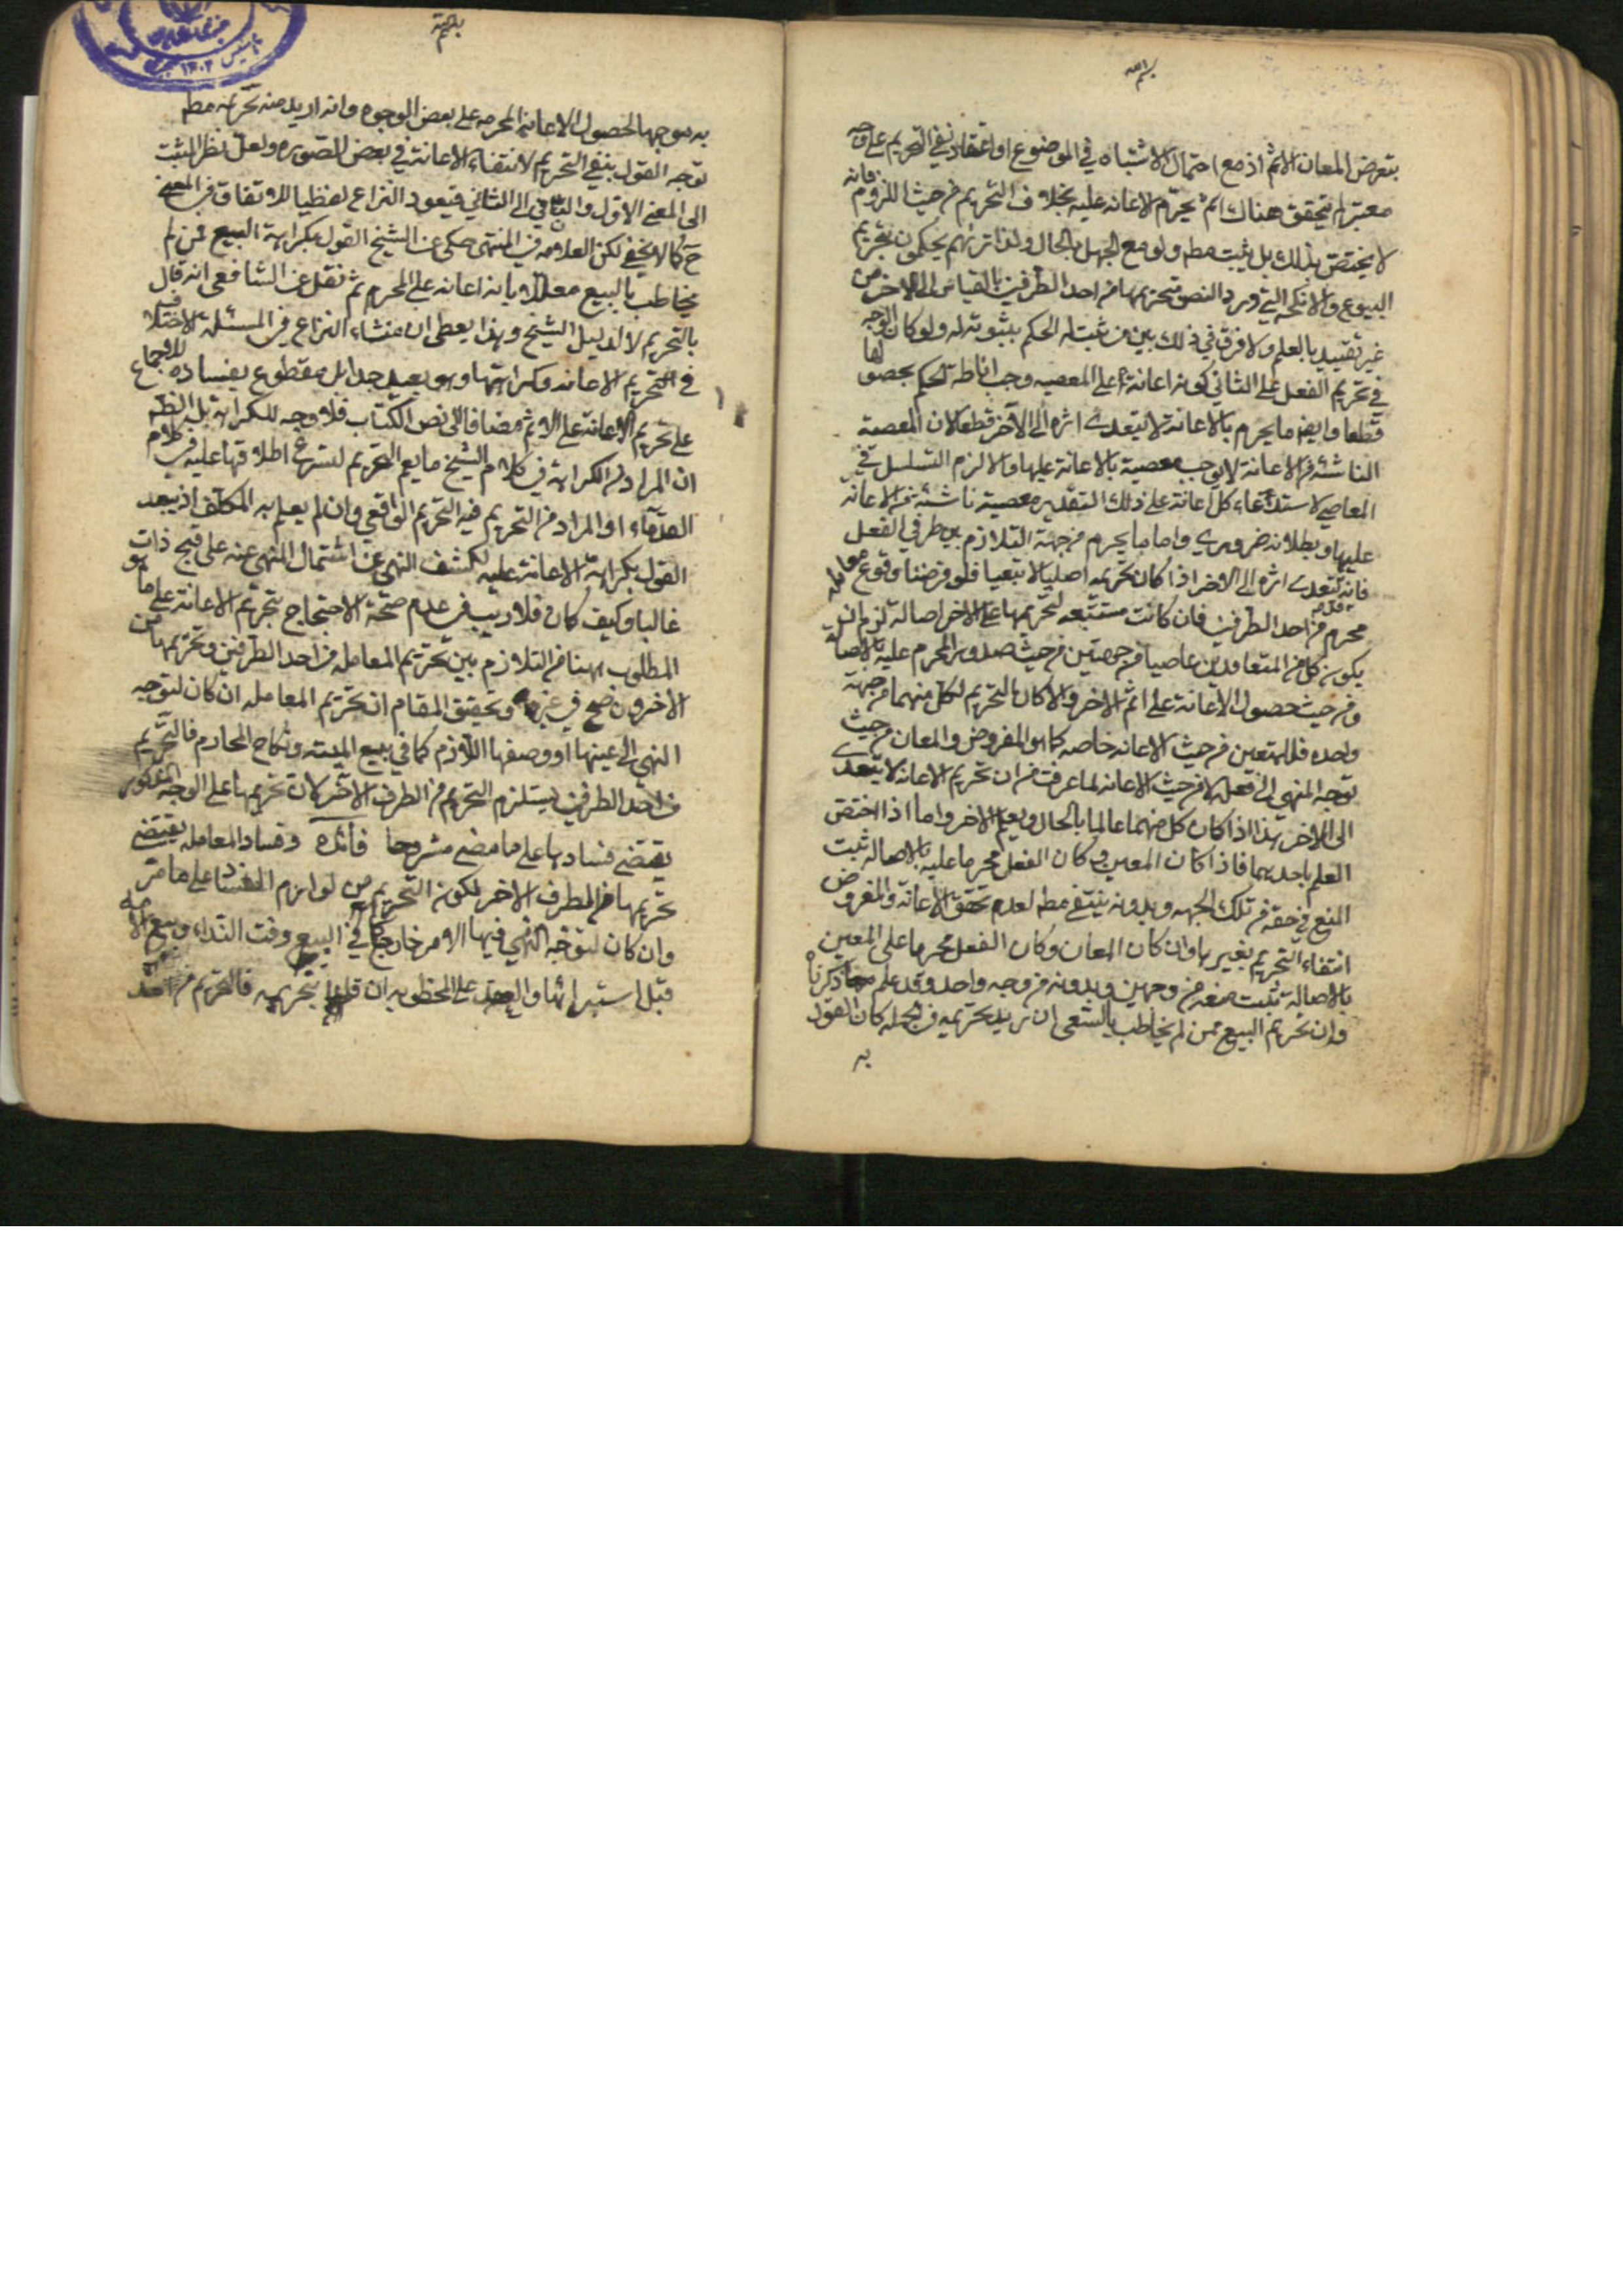 بتعرض المعان للاثم اذ مع احتمال الاشتباه في الموضوع او اعتقاد نفي التحريم على وجه
معتبر لم يتحقق هناك اثم يحرم الاعانه عليه بخلاف التحريم من حيث اللزوم فانه
لا يختص بذلك بل يثبت مطه ولو مع الجهل بالحال ولذا تريهم يحكمون بتحريم
البيوع والانكحه التي ورد النص بتحريمها من احد الطرفين بالقياس الى الاخر من
غير تقييد بالعلم ولا فرق في ذلك بين من ثبت له الحكم بثبوته له ولو كان الوجه
في تحريم الفعل على الثاني كونه اعانة على المعصيه وجب اناطة الحكم بحصولها
قطعا وايضا ما يحرم بالاعانة لا يتعدى اثره الى الآخر قطعا لان المعصية
الناشئة من الاعانة لا يوجب معصية بالاعانة عليها والا لزم التسلسل في
المعاصي لاستدعاء كل اعانة على ذلك التقدير معصية ناشئة من الاعانه
عليها وبطلانه ضروري واما ما يحرم من جهة التلازم بين طرفي الفعل
فانه يتعدى اثره الى الاخر اذا كان تحريمه اصليا لا تبعيا فلو فرضنا وقوع معامله
محرم من احد الطرفين فان كانت مستتبعه لتحريمها على الاخر اصالة لزم ان
يكون كل من المتعاقدين عاصيا من جهتين من حيث صدور المحرم عليه بالاصالة
ومن حيث حصول الاعانة على اثم الاخر والا كان التحريم لكل منهما من جهة
واحده فللمعين من حيث الاعانه خاصه كما هو المفروض والمعان من حيث
توجه النهي الى فعله لا من حيث الاعانه لما عرفت من ان تحريم الاعانه لا يتعدى
الى الاخر هذا اذا كان كل منهما عالما بالحال ويعم الاخر واما اذا اختص
العلم باحديهما فاذا كان المعين وكان الفعل محرما عليه بالاصاله ثبت
المنع في حقه من تلك الجهه وبدونه ينتفي مطه لعدم تحقق الاعانة والمفروض
انتفاء التحريم بغيرها وان كان المعان وكان الفعل محرما على المعين
بالاصالة ثبت منعه من وجهين وبدونه من وجه واحد وقد علم مما ذكرنا
وان تحريم البيع ممن لم يخاطب بالسعي ان اريد تحريمه في الجمله كان القول
به
به موجها لحصول الاعانة المحرمه على بعض الوجوه وان اريد منه تحريمه مطه
توجه القول بنفي التحريم لانتفاء الاعانة في بعض الصور ولعل نظر المثبت
الى المعنى الاول والنافي الى الثاني فيعود النزاع لفظيا للاتفاق في المعنى
ح كما لا يخفى لكن العلامه في المنتهى حكى عن الشيخ القول بكراهة البيع ممن لم
يخاطب بالبيع معللا بانه اعانه على المحرم ثم نقل عن الشافعي انه قال
بالتحريم لا لدليل الشيخ وهذا يعطي ان منشاء النزاع في المسئلة الاختلاف
في التحريم الاعانه وكراهتها وهو بعيد جدا بل مقطوع بفساده للاجماع
على تحريم الاعانة على الاثم مضافا الى نص الكتاب فلا وجه للكراهة بل الظه
ان المراد من الكراهة في كلام الشيخ ما يعم التحريم لشيوع اطلاقها عليه في كلام
القدماء او المراد من التحريم فيه التحريم الواقعي وان لم يعلم به المكلف اذ يبعد
القول بكراهة الاعانة عليه لكشف النهي عن اشتمال المنهي عنه على قبح ذات
غالبا وكيف كان فلا ريب في عدم صحة الاحتجاج بتحريم الاعانة على ما هو
المطلوب ههنا من التلازم بين تحريم المعامله من احد الطرفين وتحريمها من
الاخر وتحقيق المقام ان تحريم المعامله ان كان لتوجه
النهي الى عينها او وصفها اللازم كما في بيع الميته ونكاح المحارم فالتحريم
من احد الطرفين يستلزم التحريم من الطرف الآخر لان تحريمها على الوجه المذكور
يقتضي فسادها على ما مضى مشروحا وفساد المعامله يقتضي
تحريمها من الطرف الاخر لكون التحريم من لوازم الفساد على ما مر
وان كان لتوجه النهي فيها الامر خارج كما في البيع وقت النداء وبيع الامه
قبل استبرائها والعقد على المخطوبه ان قلنا بتحريمه فالتحريم من احد